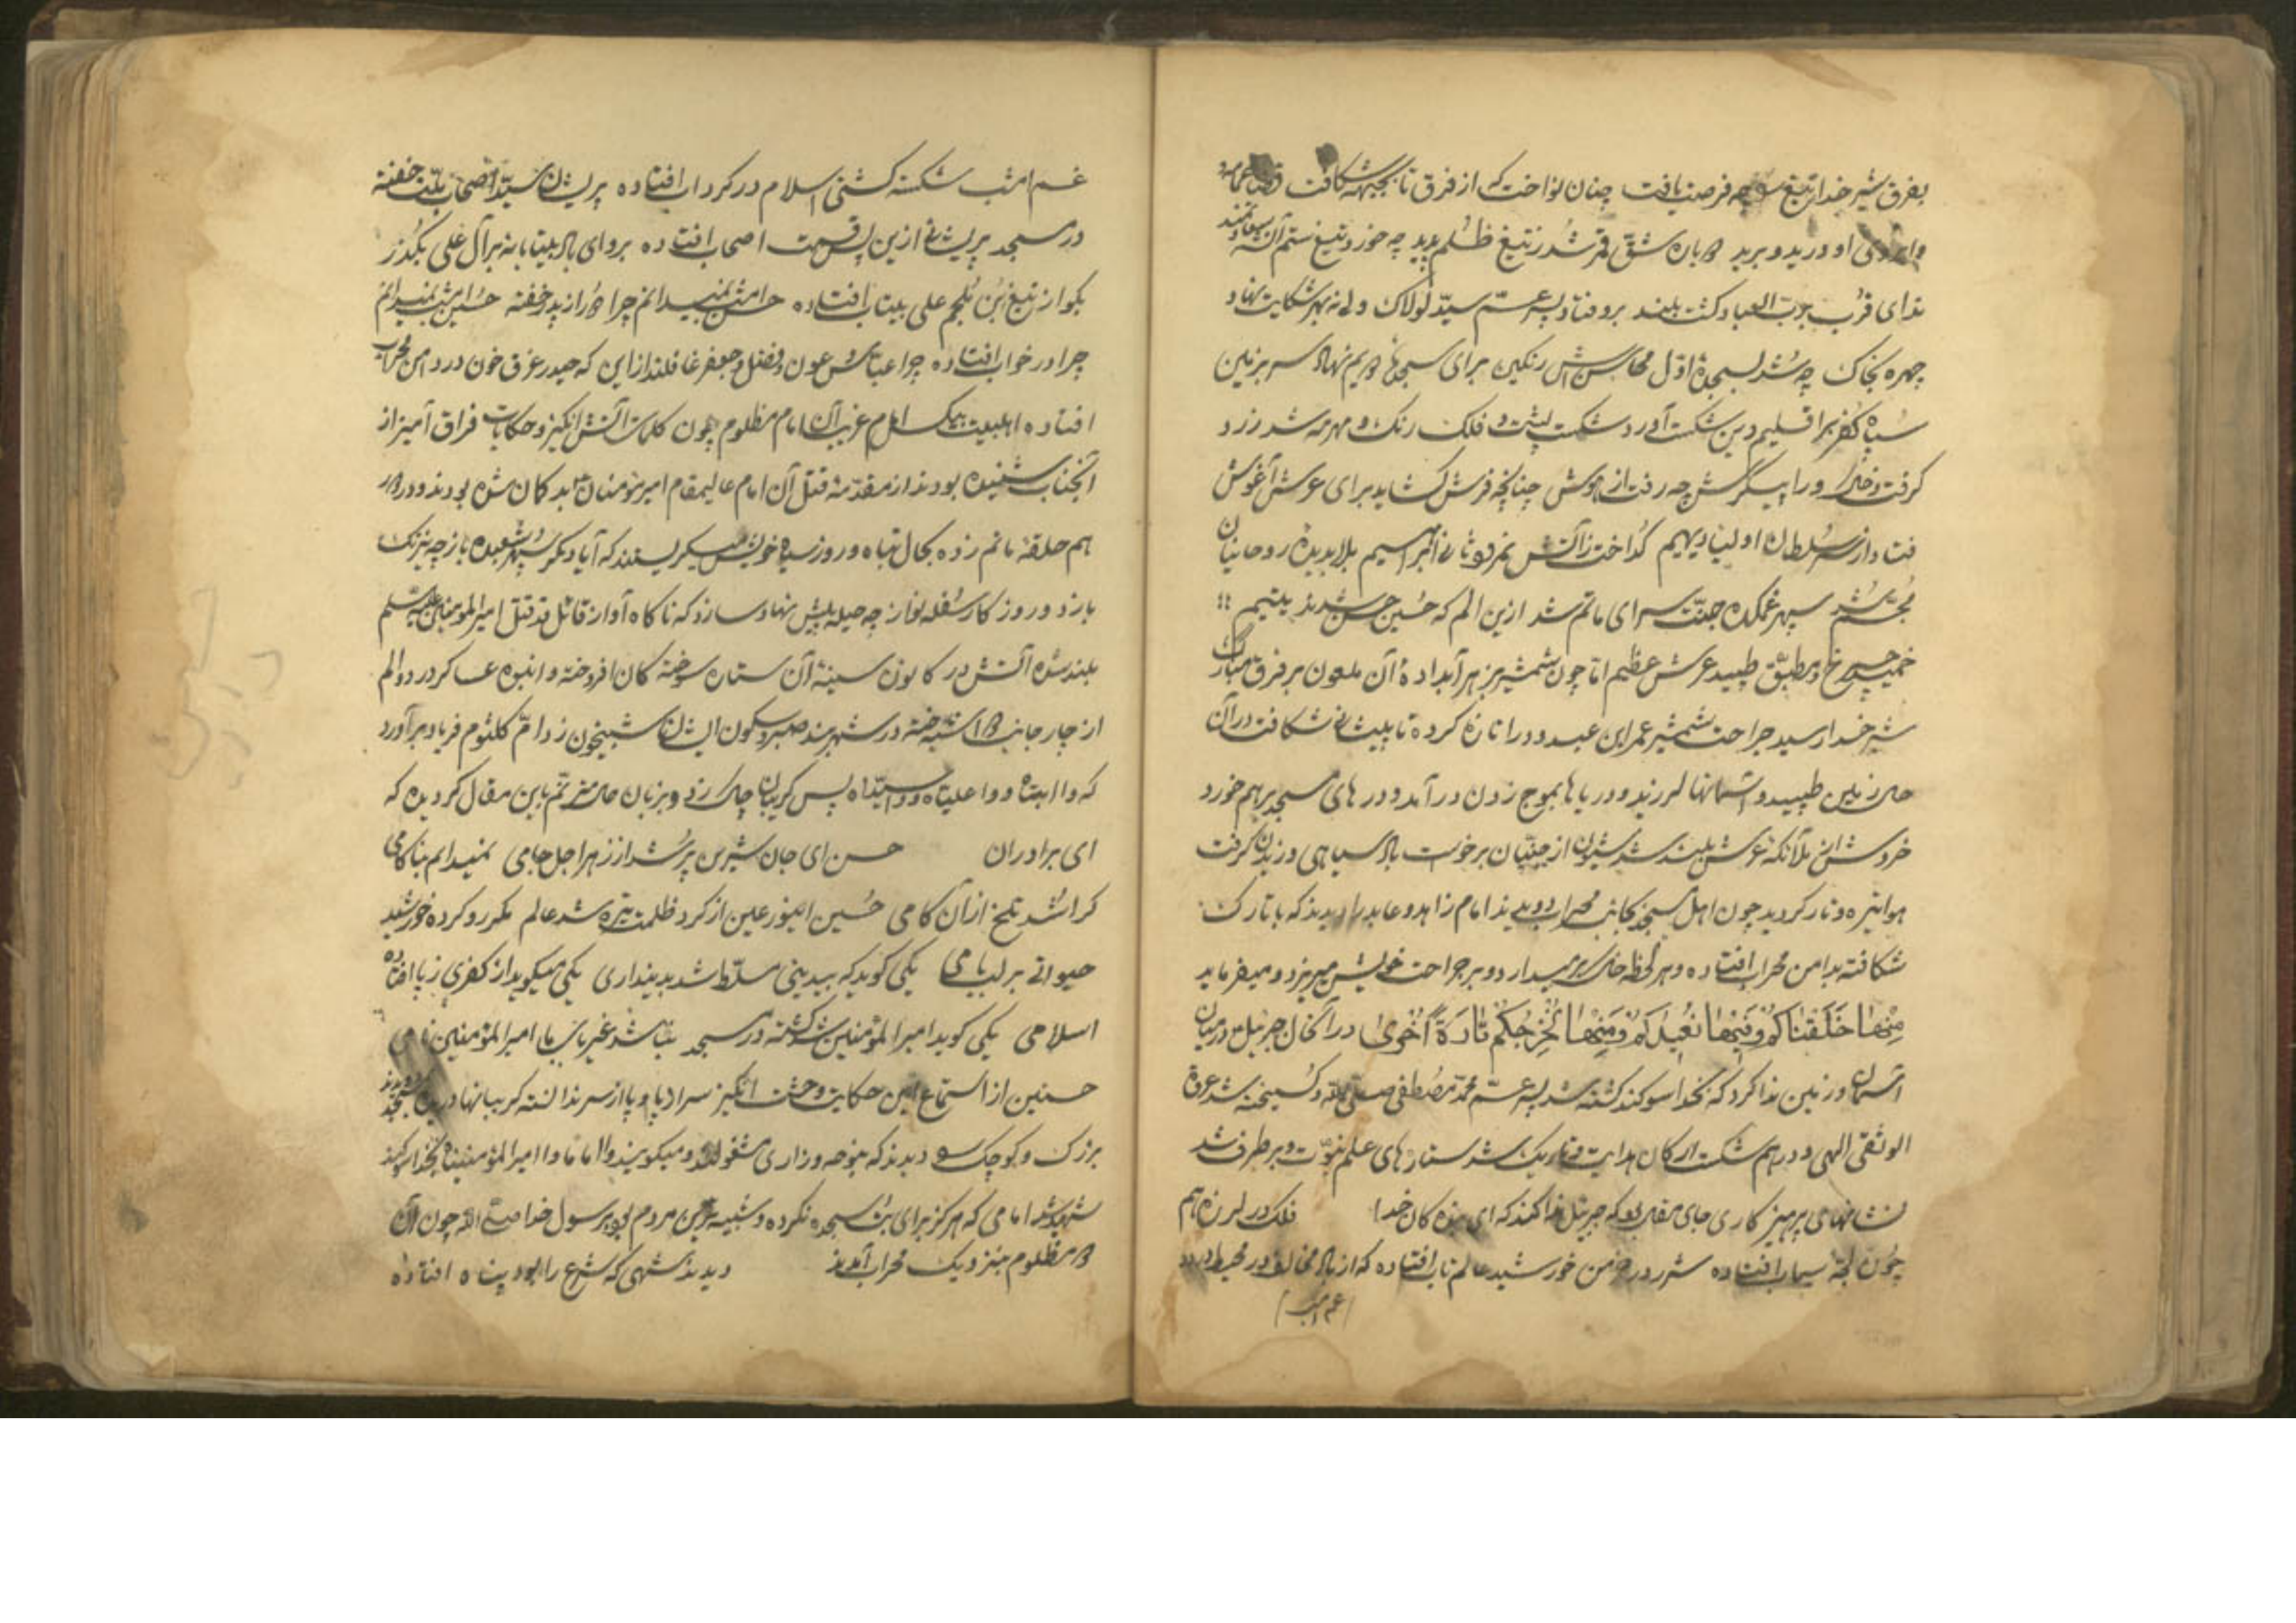 بفرق شیر خدا تیغ چه فرصت یافت چنان نواخت که از فرق تا بجبهه شکافت
و ابروی او درید و برید بان شق قمر شد ز تیغ ظلم پدید چه خورد تیغ ستم آن
ندای قرب برب العباد کشت بلند برو فتاد پسر عم سید لولاک ولی نه بهر شکایت نهاد
چهره بخاک چه شد بسجده اول محاسنش رنکین برای سجده دویم نهاد سر بزمین
سپاه کفر بر اقلیم دین شکست آورد شکست پشت فلک رنک مهر و مه شد زرد
کرفت چه رفت از هوش چنانچه فرش کشاید برای عرش آغوش
فتاد از سر سلطان اولیا دیهیم کداخت زاتش نمرود ثانی ابراهیم بلا بدیده روحانیان
مجسم شد سپهر غمکده جنت سرای ماتم شد ازین الم که حسین و حسن شدند یتیم
خمید چرخ مطبق طپید عرش عظیم اما چون شمشیر زهر آبداده آن ملعون بر فرق مبارک
شیر خدا رسید جراحت شمشیر عمر ابن عبدود را تازه کرده تا پیشانی شکافت در آن
حال زمین طپید و آسمانها لرزید و دریاها بموج زدن در آمد و درهای مسجد برهم خورد
خروش از ملائکه عرش بلند شد شیون از جنیان برخواست باد سیاهی وزیدن کرفت
هوا تیره و تار کردید چون اهل مسجد بجانب محراب دویدند امام زاهد و عابد را دیدند که با تارک
شکافته بدامن محراب افتاده و هر لحظه خاک بر میدارد و بر جراحت خویش میریزد و میفرماید
مِنها خَلَقناکُم وَفیها نُعیدُکُم وَمِنها نُخرِجُکُم تارَةً اُخری در آنحال جبرئیل در میان
آسمان و زمین ندا کرد که بخدا سوکند کشته شد پسر عم محمد مصطفی صلی الله و کسیخته شد عروة
الوثقی الهی و درهم شکست ارکان هدایت و تاریک شد ستارهای علم نبوت و بر طرف شد
نشانهای پرهیزکاری جای مقاله بود که جبرئیل ندا کند که ای بنده کان خدا فلک در لرزه هم
چون لجه سیماب افتاده شرر در خرمن خورشید عالم تاب افتاده که از باد مخالف در محیط
غم امشب
غم امشب شکسته کشتی اسلام در کرداب افتاده پریشان سید اصحاب خفته
در مسجد پریشانی ازین پس قسمت اصحاب افتاده برو ای باد بیتابانه بر آل علی بکذر
بکو از تیغ بن ملجم علی بیتاب افتاده حسن امشب نمیدانم چرا دور از پدر خفته حسین امشب نمیدانم
چرا در خواب افتاده چرا عباس و عون و فضل و جعفر غافلند از این که حیدر غرق خون در دامن محراب
افتاده اهلبیت بیکس امام غریب آن امام مظلوم چون کلمات آتش انکیز و حکایات فراق آمیز از
آنجناب شنیده بودند از مقدمه قتل آن امام عالیمقام امیر مؤمنان بد کمان شده بودند و در
هم حلقه ماتم زده بحال تباه و روز سیاه خویش میکریستند که آیا دیکر سپهر شعبده باز چه نیرنک
بازد و روز کار سفله نواز چه حیله پیش نهاد سازد که ناکاه آواز قائل قد قتل امیر المومنین علیه السلم
بلند شده آتش در کانون سینه آن ستاره سوخته کان افروخته و انبوه عساکر درد و الم
از چار جانب تاخته در شهربند صبر و سکون ایشان شبیخون زد ام کلثوم فریاد بر آورد
که وا ابتاه و وا علیاه و وا سیداه پس کریبان چاک زد و بزبان حال مترنم باین مقال کردیده که
ای برادران حسن ای جان شیرین پر شد از زهر اجل جامی نمیدانم بناکامی
کرا شد تلخ از آن کامی حسین ای نور عین از کرد ظلمت تیره شد عالم مکر رو کرده خورشید
حیواتی بر لب بامی یکی کوید که بیدینی مسلط شد بدینداری یکی میکوید از کفری ز پا افتاده
اسلامی یکی کوید امیر المؤمنین شد کشته در مسجد نباشد غیر باب ما امیر المؤمنین نامی
حسنین از استماع این حکایت وحشت انکیز سر از پا و پا از سر ندانسته کریبانها دریده بمسجد دویدند
بزرک و کوچک دیدند که بنوحه و زاری مشغولند و میکویند وا اماما وا امیر المؤمنیناه بخدا سوکند
شهید شد امامی که هرکز برای بت سجده نکرده و شبیه ترین مردم بود برسول خدا صلی الله چون آن
دو مظلوم بنزدیک محراب آمدند دیدند شهی که شرع را بود پناه افتاده